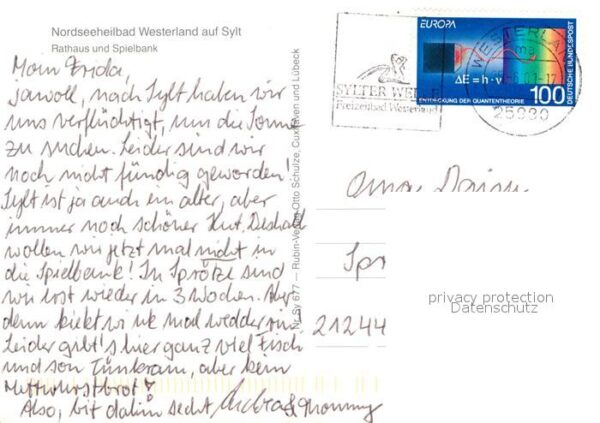 Nordseeheilbad Westerland auf Sylt
Rathaus und Spielbank
Moin Frida,
jawoll, nach Sylt haben wir
uns verflüchtigt, um die Sonne
zu suchen. Leider sind wir
noch nicht fündig geworden!
Sylt ist ja auch ein alter, aber
immer noch schöner Hut. Deshalb
wollen wir jetzt mal nicht in
die Spielbank! In Sprötze sind
wir erst wieder in 3 Wochen. Aber
denn kiekt wi uk mal wedder rin
Leider gibt's hier ganz viel Fisch
und son Tünkram, aber kein
Mettwurstbrot!
Also, bit dahin secht
Nr. Sy 677 — Rubin-Verlag Otto Schulze, Cuxhaven und Lübeck
SYLTER WELLE
Freizeitbad Westerland
EUROPA
ΔE = h · ν
ENTDECKUNG DER QUANTENTHEORIE
100
DEUTSCHE BUNDESPOST
WESTERLAND
25980
Spr
21244
privacy protection
Datenschutz